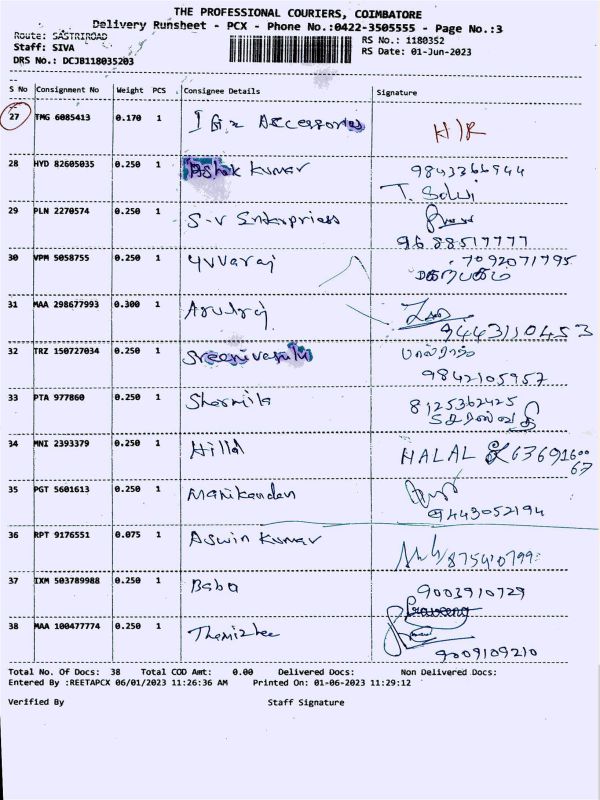 THE PROFESSIONAL COURIERS, COIMBATORE
Delivery Runsheet - PCX - Phone No.:0422-3505555 - Page No.:3
Route: SASTRIROAD
RS No.: 1180352
Staff: SIVA
RS Date: 01-Jun-2023
DRS No.: DCJB118035203
S No Consignment No Weight PCS Consignee Details Signature
27 TMG 6085413 0.170 1 Accessories
28 HYD 82605035 0.250 1 Ashok Kumar 9843366944
T. Selvi
29 PLN 2270574 0.250 1 S-V Enterpriess
9688517777
30 VPM 5058755 0.250 1 Yuvaraj 7092071795
31 MAA 298677993 0.300 1 Arulraj
9443110453
32 TRZ 150727034 0.250 1 Sreenivasulu
9842105957
33 PTA 977860 0.250 1 Sharmila 8125362425
34 MNI 2393379 0.250 1 Hillal HALAL
35 PGT 5601613 0.250 1 Manikandan
9443052194
36 RPT 9176551 0.075 1 Aswin Kumar
37 IXM 503789988 0.250 1 Baba 9003910729
38 MAA 100477774 0.250 1
9009109210
Total No. Of Docs: 38 Total COD Amt: 0.00 Delivered Docs: Non Delivered Docs:
Entered By :REETAPCX 06/01/2023 11:26:36 AM Printed On: 01-06-2023 11:29:12
Verified By Staff Signature